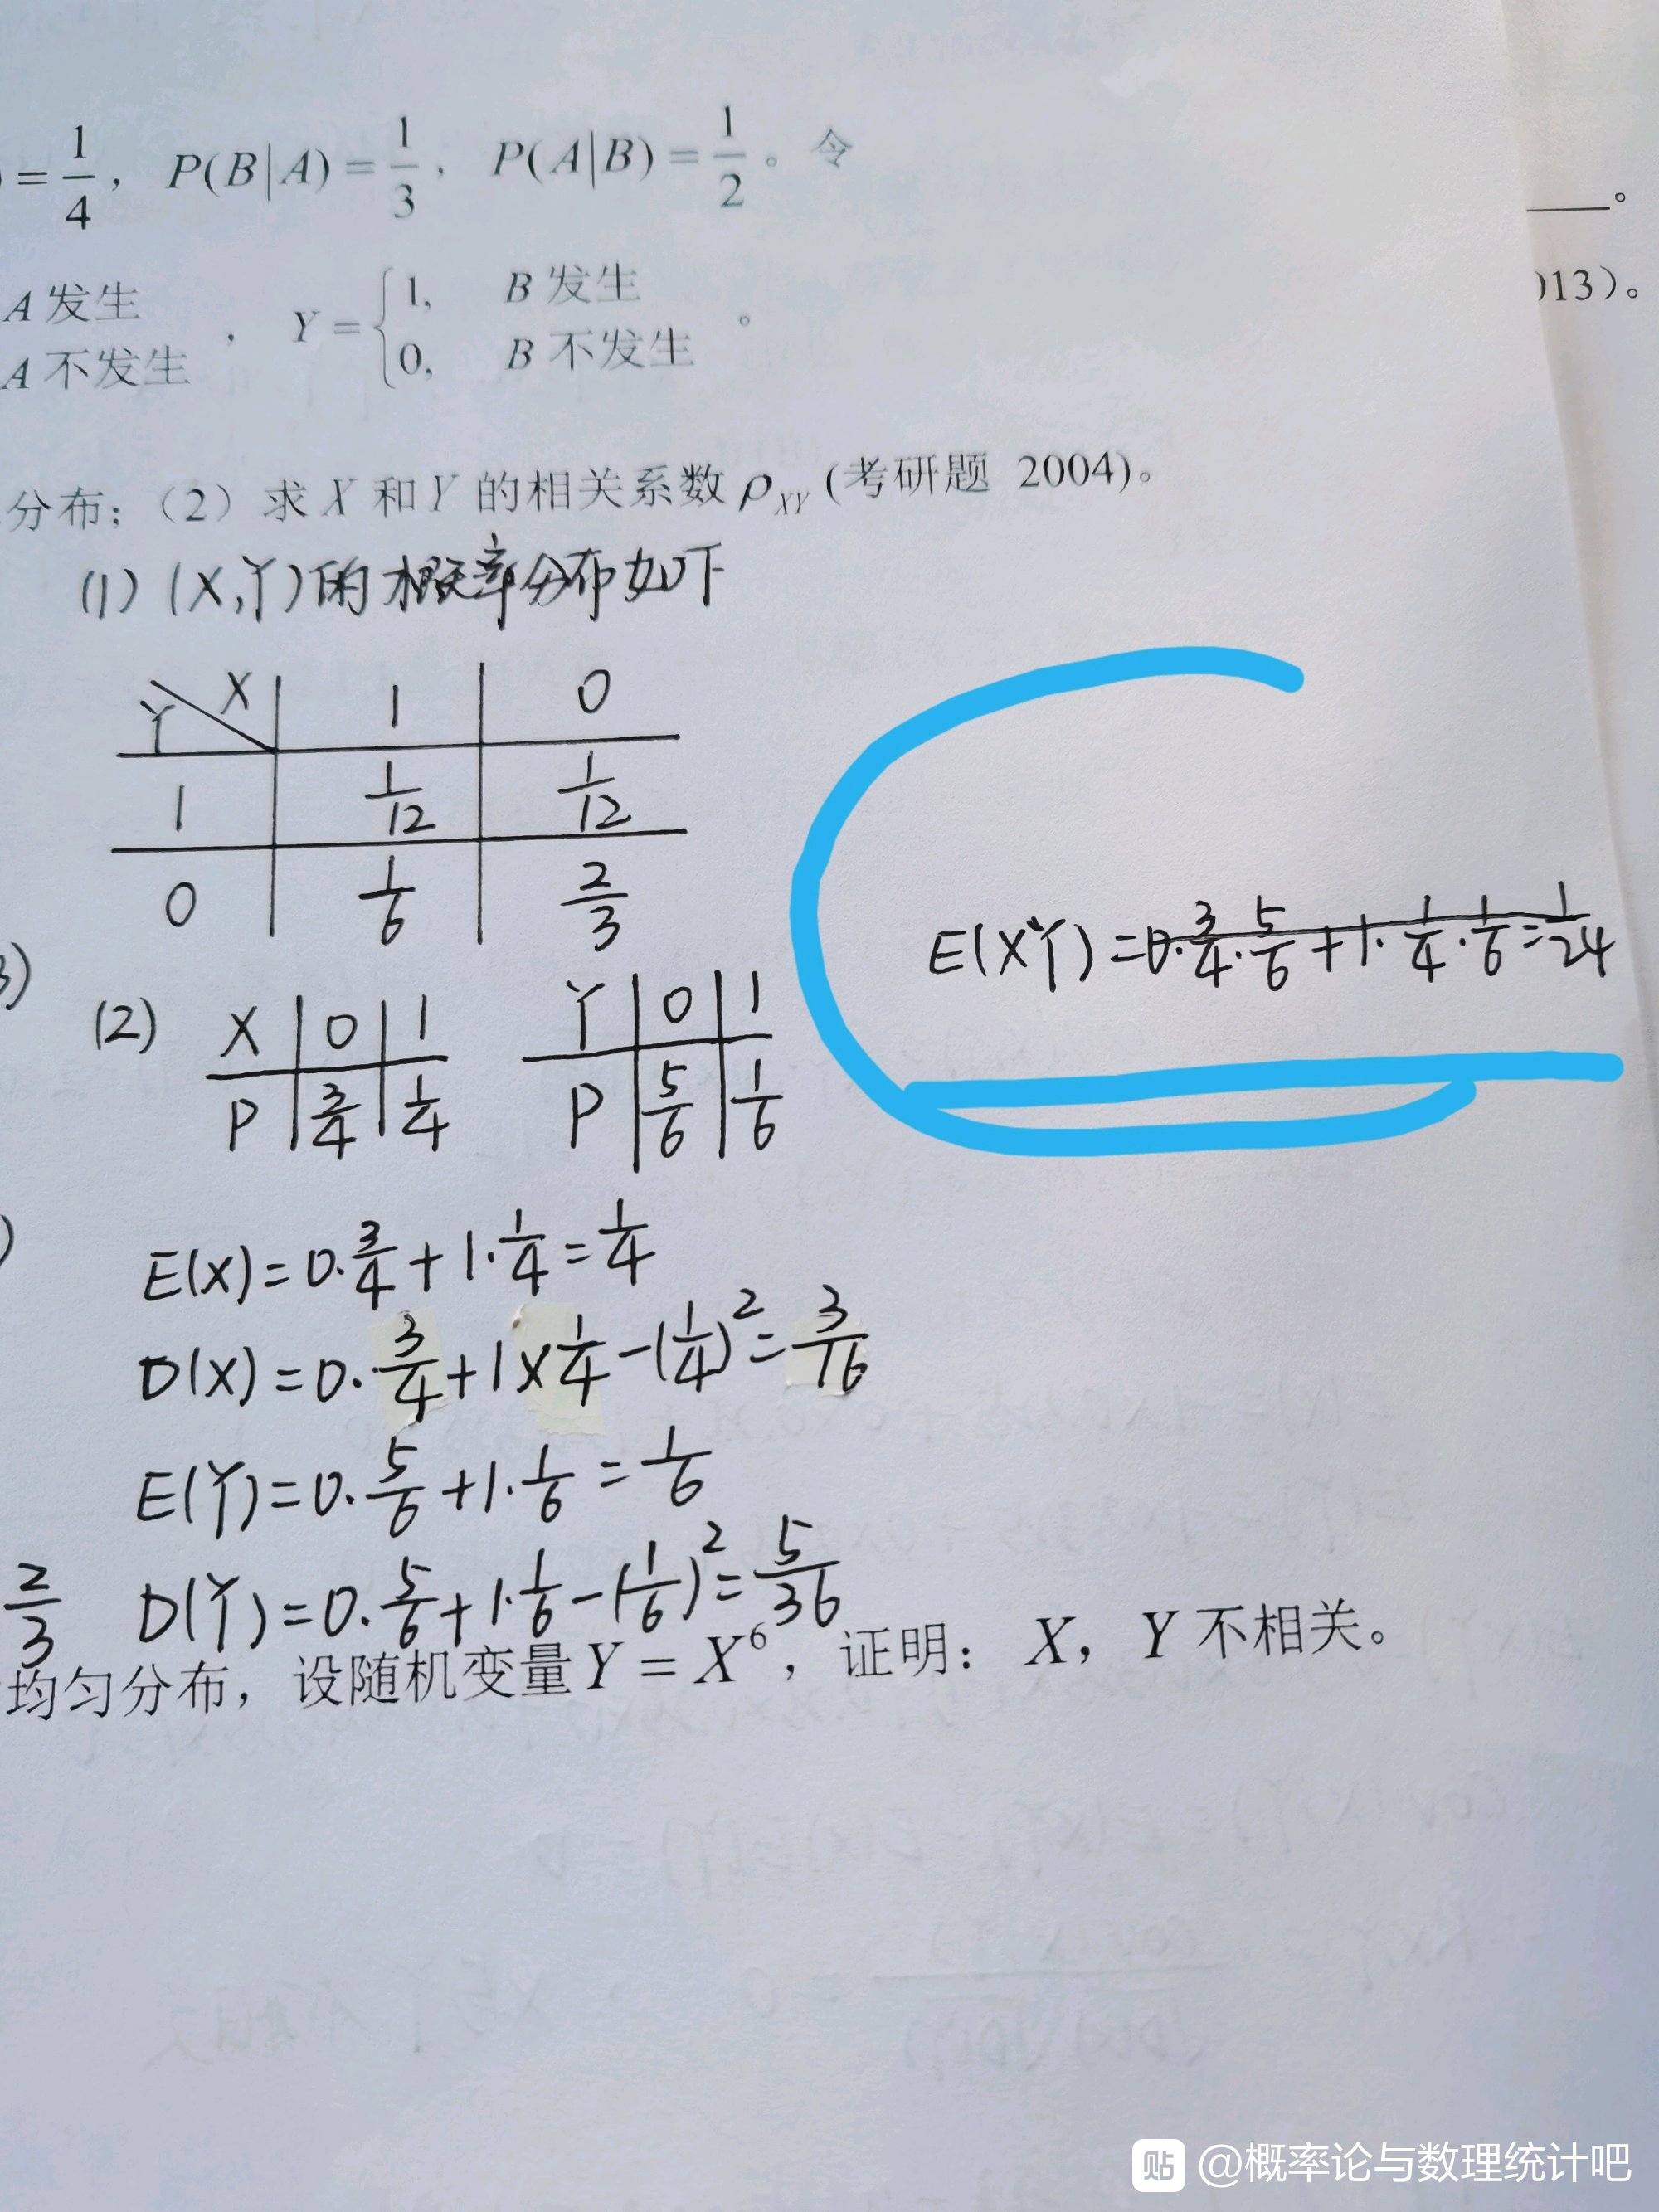 = 1/4， P(B|A) = 1/3， P(A|B) = 1/2。令
。
A 发生
A 不发生
， Y = { 1, B 发生
0, B 不发生 。
013）。
分布；（2）求 X 和 Y 的相关系数 ρ_XY (考研题 2004)。
(1) (X,Y)的概率分布如下
Y X 1 0
1 1/12 1/12
0 1/6 2/3
E(XY)=0·3/4·5/6+1·1/4·1/6=1/24
3)
(2) X 0 1
P 3/4 1/4
Y 0 1
P 5/6 1/6
)
E(X)=0·3/4+1·1/4=1/4
D(X)=0·3/4+1×1/4-(1/4)²=3/16
E(Y)=0·5/6+1·1/6=1/6
2/3 D(Y)=0·5/6+1·1/6-(1/6)²=5/36
均匀分布，设随机变量 Y = X⁶，证明： X，Y 不相关。
贴 @概率论与数理统计吧